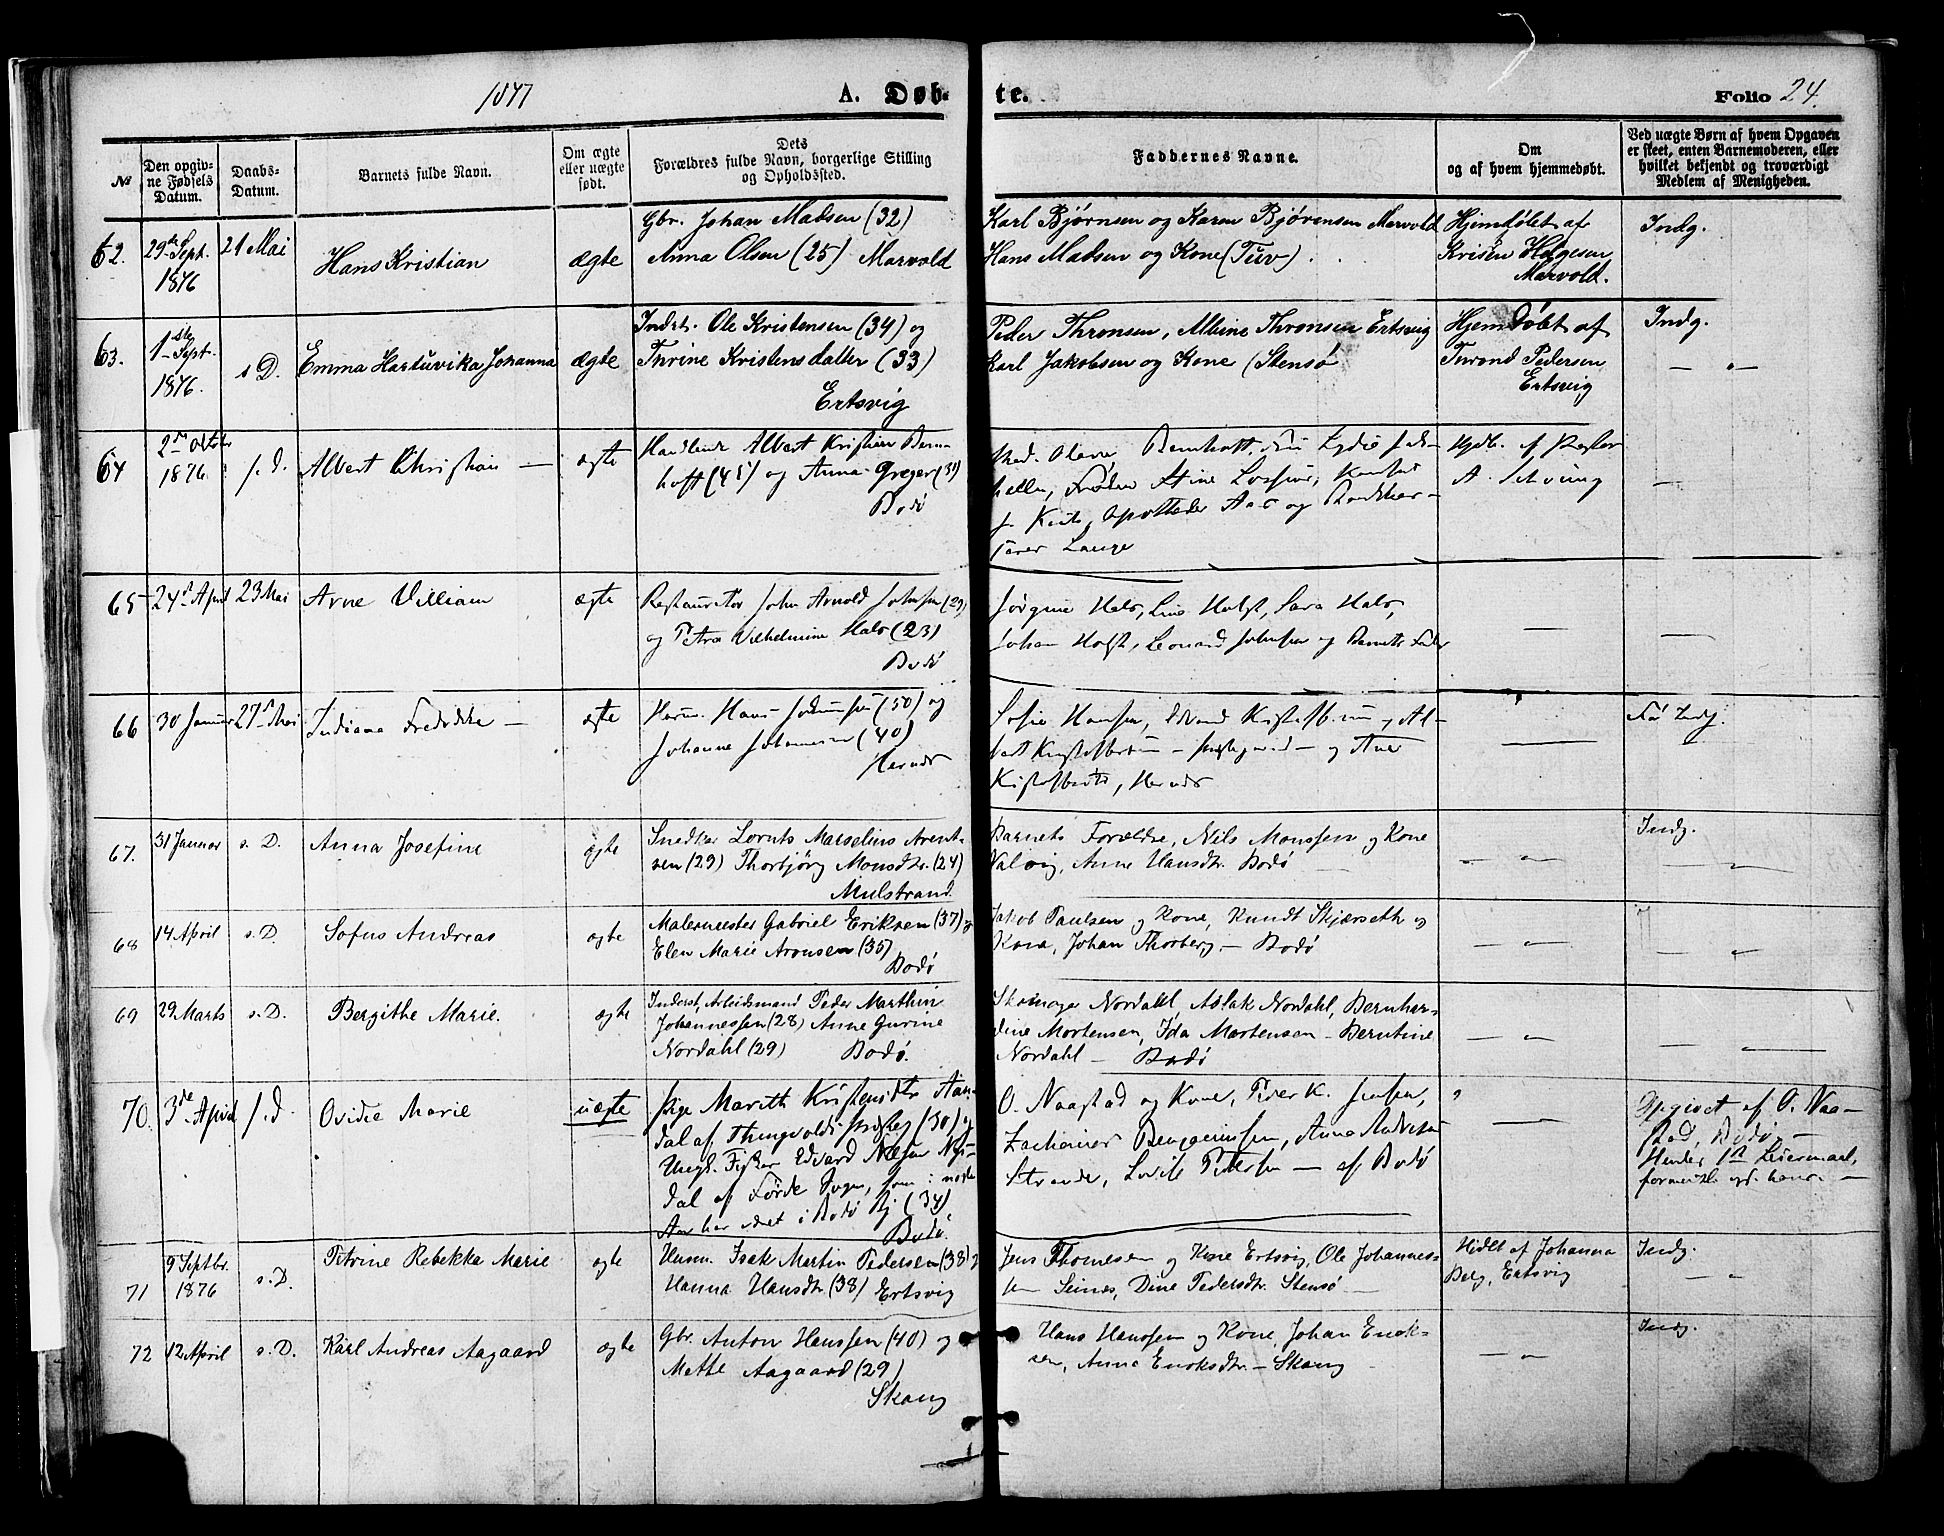 1877
A. Døb-
te.
Folio 24.
№
Den opgiv-
ne Fødsels
Datum.
Daabs-
Datum.
Barnets fulde Navn.
Om ægte
eller uægte
født.
Dets
Forældres fulde Navn, borgerlige Stilling
og Opholdssted.
Faddernes Navne.
Om
og af hvem hjemmedøbt.
Ved uægte Børn af hvem Opgaven
er skeet, enten Barnemoderen, eller
hvilket bekjendt og troværdigt
Medlem af Menigheden.
62.
29de Sept.
1876
21 Mai
Hans Kristian
ægte
Gbr. Johan Madsen (32)
Anna Olsen (25) Marvold
Karl Bjørnsen og Karen Bjørensen Marvold
Hans Madsen og Kone (Tuv)
Hjemdøbt af
Marvold.
Indg.
63.
1ste Sept.
1876.
s D.
Emma Hartuvika Johanna
ægte
Indst. Ole Kristensen (34) og
Thrine Kristensdatter (33)
Ertsvig
Peder Thronsen, Thronsen Ertsvig
Karl Jakobsen og Kone (Stensø
Hjemdøbt af
Pedersen
Ertsvig
Indg.
— " —
64
2den Oktober
1876
s. d.
Albert Christian —
ægte
Handlende Albert Kristian Bern-
hoft (45) og Anna Greger
Bodø
Lange
Hjdt. af Pastor
—
65
24de April
23 Mai
Arne Villiam
ægte
Restauratør John Arnold Johnsen (29)
og Petra Vilhelmine Hals (23)
Bodø
Jørgine Hals, Line Holst, Sara Hals,
Johan Holst, Leonard Johnsen og Barnets Fader
—
—
66
30 Januar
27de Mai
Indiana Fredrikke —
ægte
Husm. Hans (50) og
Johanne Johannesen (40)
Hernes
Sofie Hansen, Edvard
Hernes
—
Indg.
—
67.
31 Januar
s. D.
Anna Josefine
ægte
Snedker Lornts Marselius Arent-
sen (29) Thorbjørg Monsdtr. (24)
Mulstrand.
Barnets Forældre, Nils Monssen og Kone
Valvig, Anne Hansdtr. Bodø
" "
Indg.
— " —
68
14 April
s. D.
Sofus Andreas
ægte
Malermester Gabriel Eriksen (37) og
Elen Marie Aronsen (35)
Bodø
Jakob Paulsen og Kone, Knudt Skjærseth og
Kona, Johan Thorberg — Bodø
— " —
— " —
69
29 Marts
s. D.
Bergithe Marie.
ægte
Inderst, Arbeidsmand Peder Marthin
Johannessen (28) Anne Gurine
Nordahl (29) Bodø.
Skomager Nordahl, Aslak Nordahl, Bernhar-
dine Mortensen, Ida Mortensen — Berntine
Nordahl — Bodø
— " —
— " —
70.
3de April
s. d
Ovidie Marie
uægte
Pige Marith Kristensdtr Aan-
dal af Thingvolds Præstegj (30) og
Ungk. Fisker Edvard
dal af Førde Sogn, som i næste
Aar har været i Bodø By (34)
Bodø.
O. Naastad og Kone, Peder K. Jensen,
Zacharias Benjaminsen, Anna
— af Bodø
—
Opgivet af O. Naa-
stad, Bodø, —
Hendes 1ste Leiermaal,
71
9 Septbr.
1876
s. D.
Petrine Rebekka Marie
ægte
Husm. Isak Martin Pedersen (38) og
Hanna Hansdtr. (38) Ertsvig
Jens Thomesen og Kone Ertsvig, Ole Johannes-
sen Seines, Dine Pedersdtr. Stensø —
Hjdbt af Johanna
Berg, Ertsvig
Indg.
— " —
72
12 April
s. D.
Karl Andreas Aagaard
ægte
Gbr. Anton Hanssen (40) og
Mette Aagaard (29)
Skaug
Hans Hanssen og Kone, Johan Enok-
sen, Anna Enoksdtr. — Skaug
— " —
Indg.